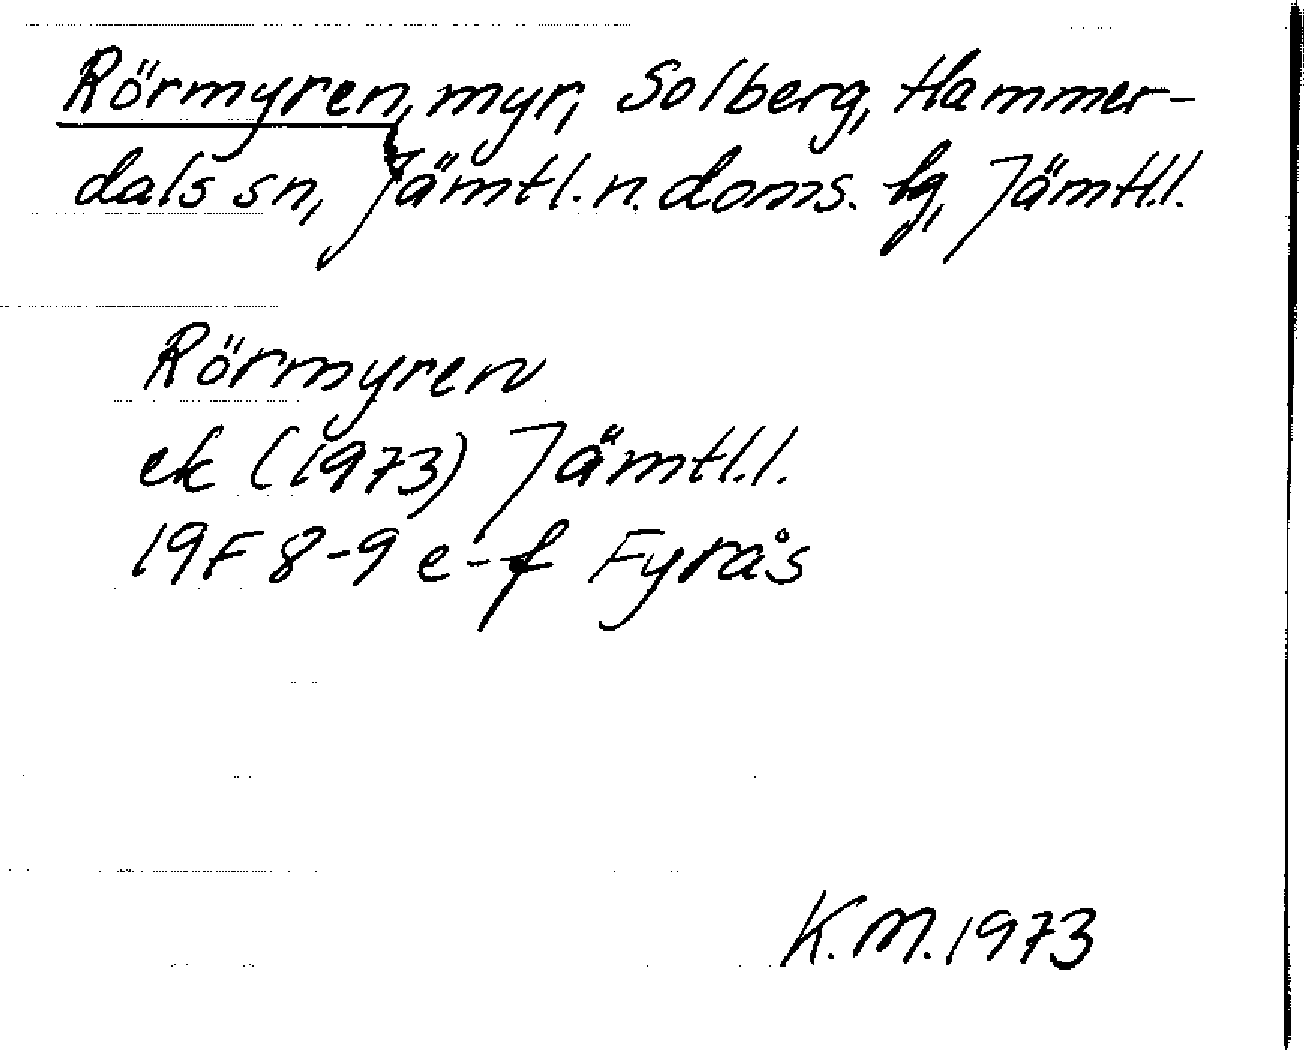 Rörmyren, myr, Solberg, Hammer-
dals sn, Jämtl. n. doms. tg, Jämtl.l.
Rörmyren
ek (1973) Jämtl.l.
19F 8-9 e-f Fyrås
K.M. 1973